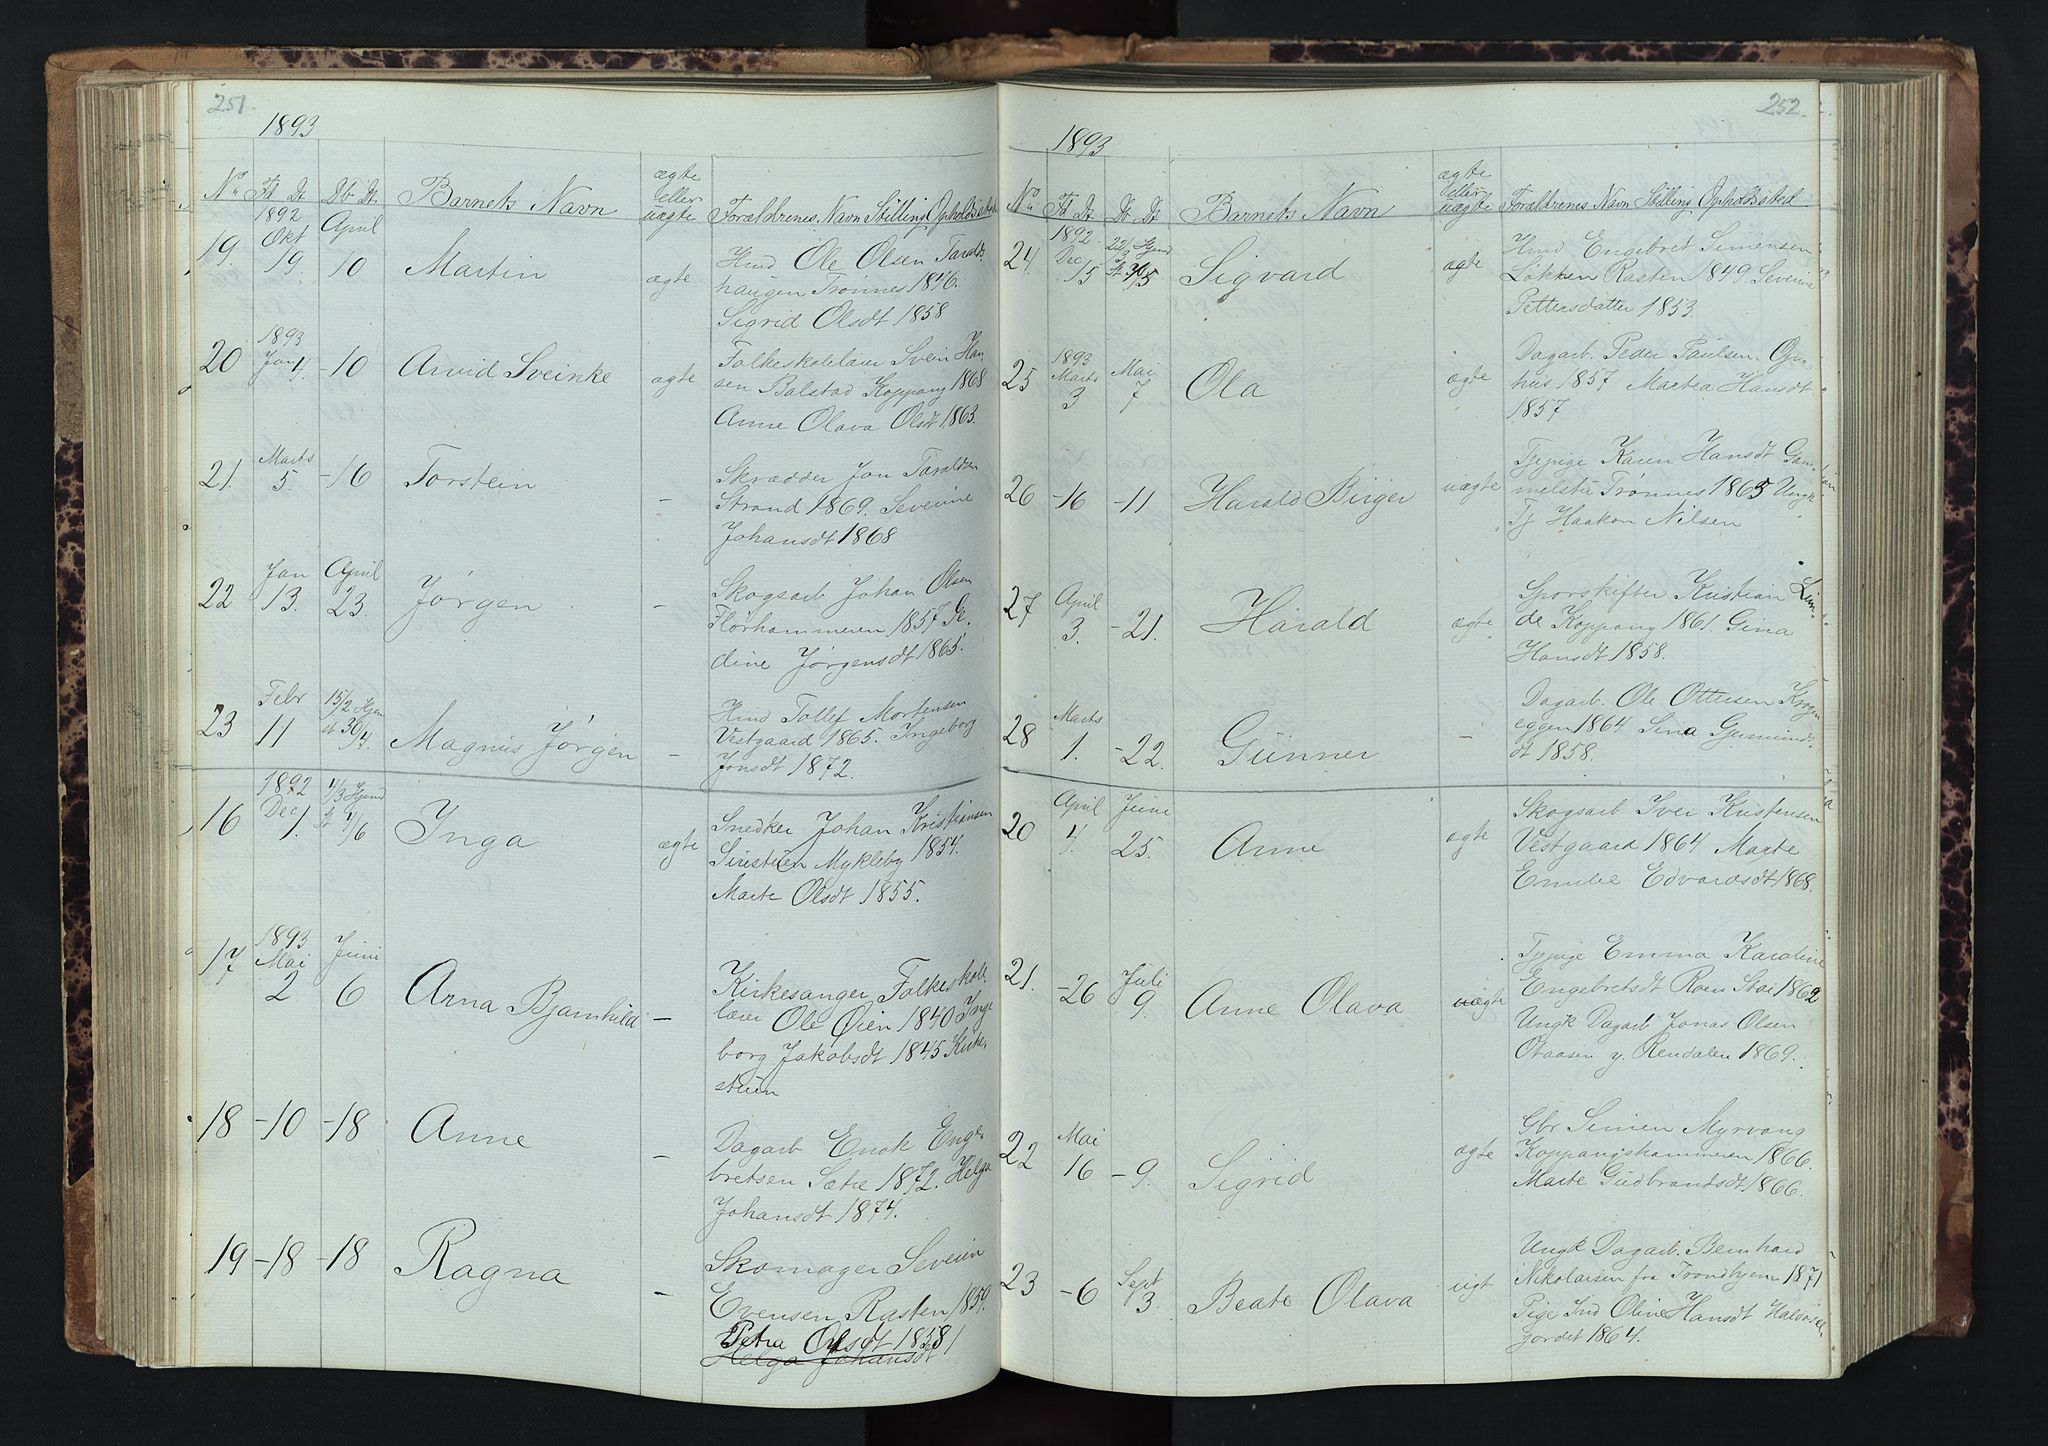 251.
1893
No Fd Dt. Db Dt. Barnets Navn ægte eller uægte Forældrenes Navn Stilling Opholdssted
1892 Okt April
19. 19. 10 Martin ægte Hmd Ole Olsen Taralds-
haugen Trønnes 1846.
Sigrid Olsdt 1858
1893
20 Jan 4. -10 Arvid Sveinke ægte Folkeskolelærer Svein Han-
sen Balstad Koppang 1868
Anne Olava Olsdt 1863.
21. Marts 5. -16 Torstein - Skrædder Jon Taraldsen
Strand 1869. Severine
Johansdt 1868
22 Jan 13. April 23. Jørgen - Skogsarb Johan Olsen
Florhammeren 1857 Ge-
dine Jørgensdt 1865
23 Febr 11 15/2 Hjem st 30/4. Magnus Jørgen - Hmd Tollef Mortensen
Vestgaard 1865. Ingeborg
Jonsdt 1872.
16 1892 Dec 1. 4/3 Hjmd St 4/6 Inga ægte Snedker Johan Kristiansen
Sirustuen Mykleby 1854.
Marte Olsdt 1855.
17 1893 Mai 2 Juni 6 Arna Bjarnhild - Kirkesanger Folkeskole-
lærer Ole Øien 1840 Inge
borg Jakobsdt 1845 Kirke-
stuen
18 -10 -18 Anne - Dagarb Enok Enge-
bretsen Sætre 1872. Helga
Johansdt 1874.
19 -18 -18 Ragna - Skomager Severin
Evensen Rasten 1859.
Petra Olsdt 1858
Helga Johansdt
252.
1893
No Fd Dt. Db Dt Barnets Navn ægte eller uægte Forældrenes Navn Stilling Opholdssted
24. 1892. Dec 15 22/1 Hjmd St 7/5 Sigvard ægte Hmd Engebret Simensen
Løkken Rasten 1849. Severine
Pettersdatter 1853.
25 1893 Marts 3 Mai 7 Ola ægte Dagarb. Peder Paulsen Op-
hus 1857 Martea Hansdt
1857
26 -16 -11 Harald Birger uægte Tjpige Karen Hansdt Gam-
melstu Trønnes 1865 Ungk
Tj Haakon Nilsen
27 April 3. -21. Harald ægte Sporskifter Kristian Lun-
de Koppang 1861. Gina
Hansdt 1858.
28 Marts 1. -22. Gunner - Dagarb. Ole Ottersen Krog
eggen 1864 Sina Gjermunds-
dt 1858.
20 April 4. Juni 25. Anne ægte Skogsarb Iver Kristensen
Vestgaard 1864 Marte
Emilie Edvardsdt 1868.
21. -26 Juli 9. Anne Olava uægte Tjpige Emma Karoline
Engebretsdt Roen Stai 1862
Ungk Dagarb Jonas Olsen
Otaasen y. Rendalen 1869.
22 Mai 16 -9. Sigrid ægte Gbr Simen Myrvang
Koppangshammeren 1866.
Marte Gudbrandsdt 1866.
23 -6 Sept 3. Beate Olava uægt Ungk Dagarb. Bernhard
Nikolaisen fra Trondhjem 1871
Pige Ind Oline Hansdt Haldors-
jordet 1864.